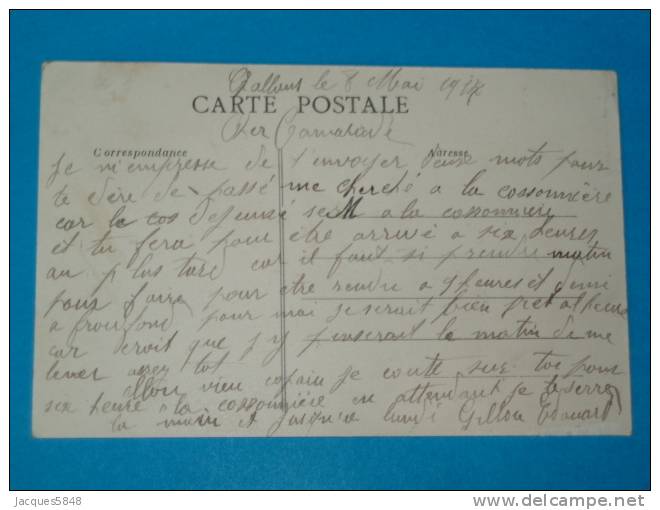 Challans le 8 Mai 19
CARTE POSTALE
Cher Camarade
Correspondance Adresse
Je m'empresse de t'envoyer deux mots pour
te dire de passé me cherché a la cossonnière
car le cos dejeuné seul a la cossonniere
et tu fera pour être arrivé a six heures
au plus tard car il faut si prendre matin
pour pour etre rendu a 9 heures et demi
a froidfond pour moi je serait bien pret a l'heure
car croit que j'y penserait le matin de me
lever assez tot
allon vieu copain je conte sur toi pour
six heure a la cossonnière en attendant je te serre
la main et jusqu'a lundi Gillou Edouard
Jacques5848
delcampe.net